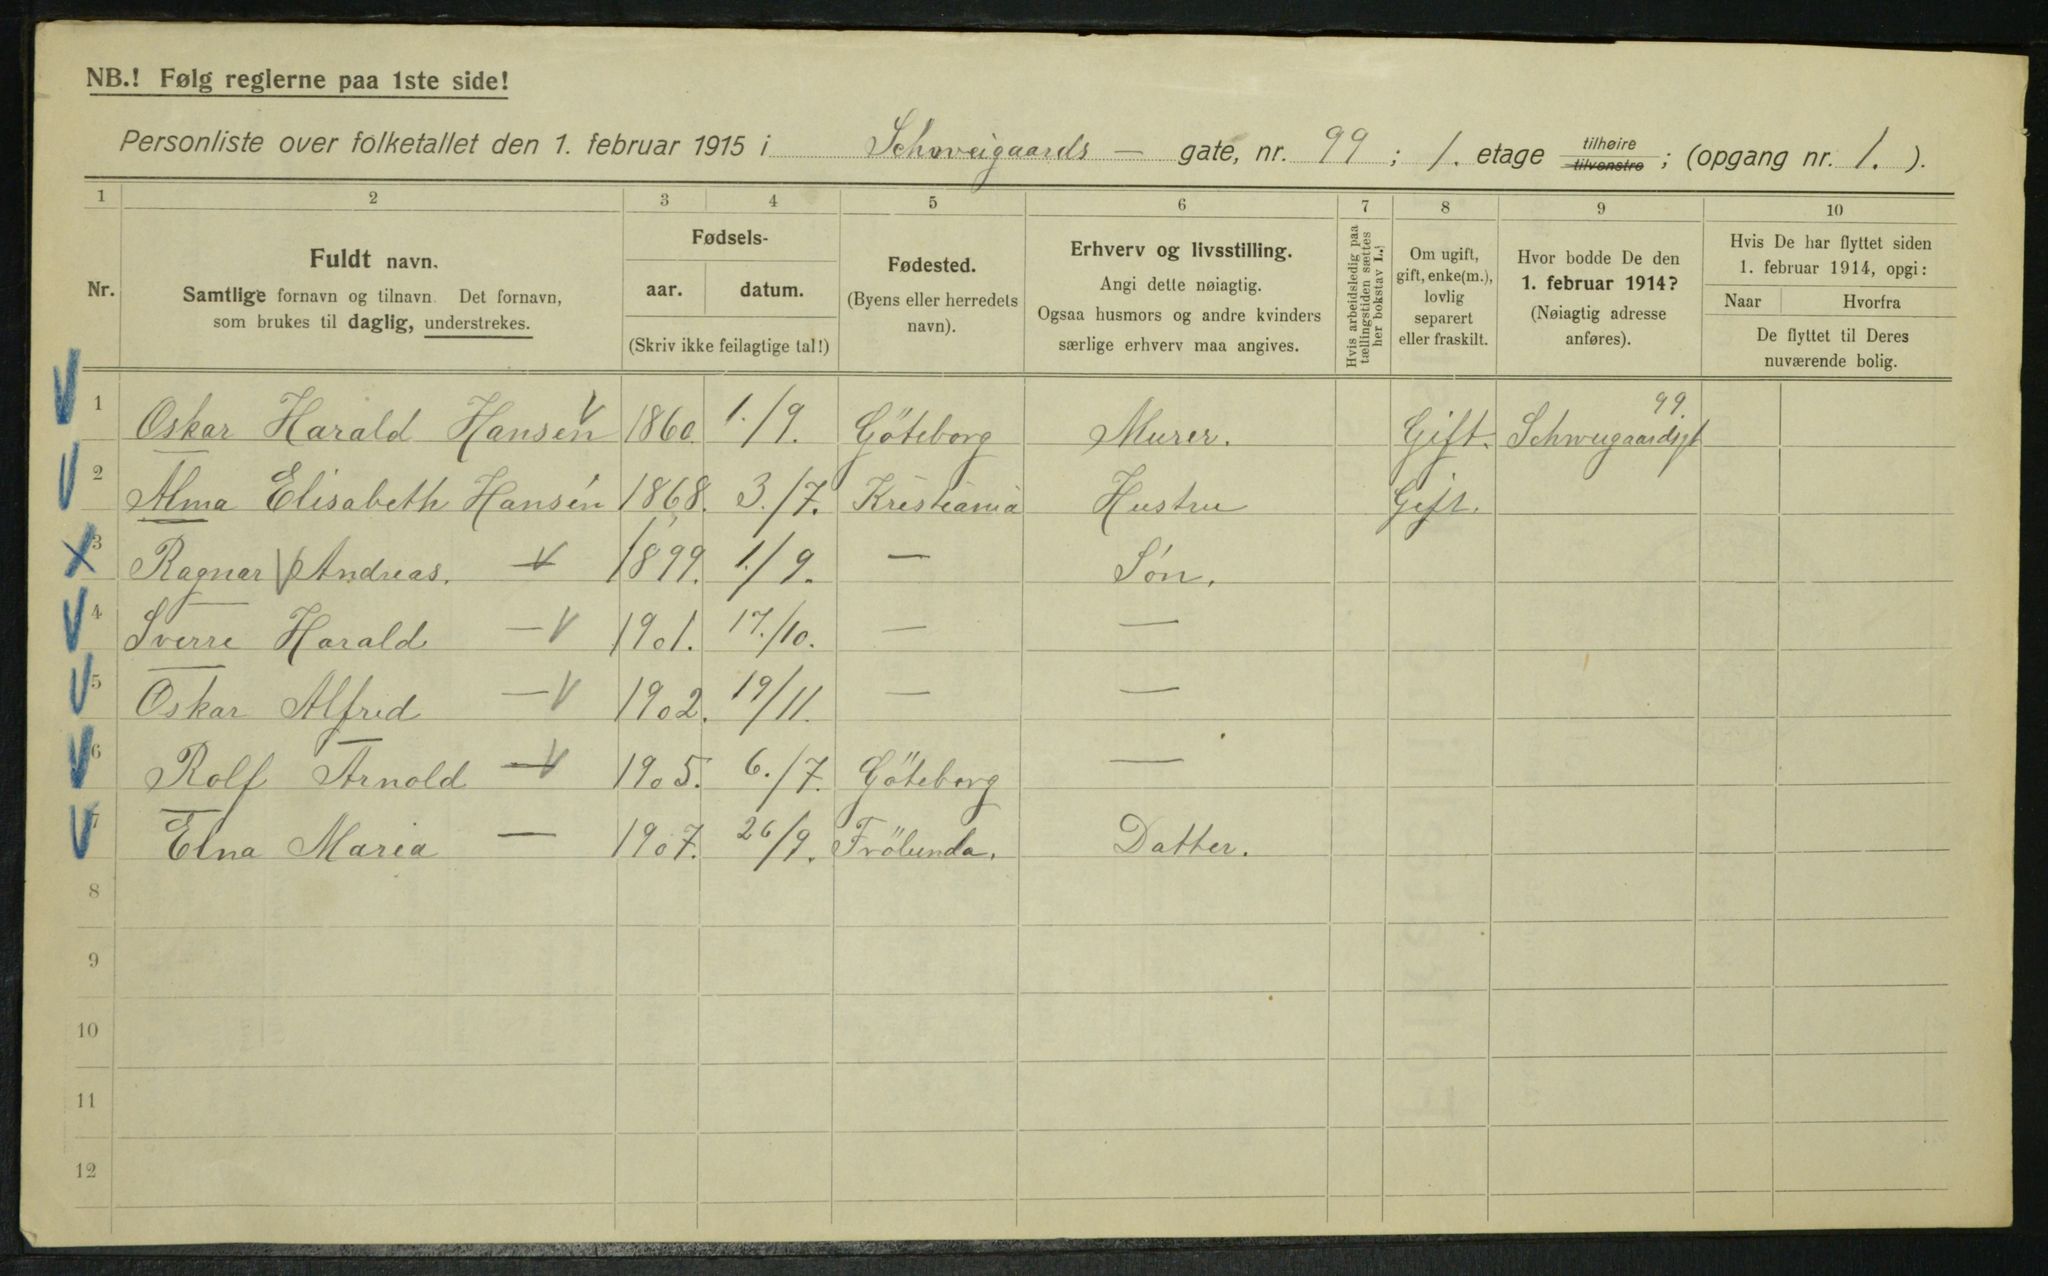 NB.! Følg reglerne paa 1ste side!
Personliste over folketallet den 1. februar 1915 i Schweigaards — gate, nr. 99 ; 1. etage tilhøire tilvenstre ; (opgang nr. 1. ).
1 2 3 4 5 6 7 8 9 10
Nr.
Fuldt navn.
Samtlige fornavn og tilnavn. Det fornavn,
som brukes til daglig, understrekes.
Fødsels-
aar. datum.
(Skriv ikke feilagtige tal!)
Fødested.
(Byens eller herredets
navn).
Erhverv og livsstilling.
Angi dette nøiagtig.
Ogsaa husmors og andre kvinders
særlige erhverv maa angives.
Hvis arbeidsledig paa
tællingstiden sættes
her bokstav L.)
Om ugift,
gift, enke(m.),
lovlig
separert
eller fraskilt.
Hvor bodde De den
1. februar 1914?
(Nøiagtig adresse
anføres).
Hvis De har flyttet siden
1. februar 1914, opgi:
Naar Hvorfra
De flyttet til Deres
nuværende bolig.
1 Oskar Harald Hansen 1860. 1./9. Göteborg Murer. Gift. Schweigaardsgt 99.
2 Alma Elisabeth Hansen 1868. 3./7. Kristiania Hustru Gift.
3 Ragnar Andreas. — 1899. 1./9. — Søn.
4 Sverre Harald — 1901. 17./10. — —
5 Oskar Alfred — 1902. 19/11. — —
6 Rolf Arnold — 1905. 6./7. Göteborg —
7 Elna Maria — 1907. 26/9. Frölunda. Datter.
8
9
10
11
12